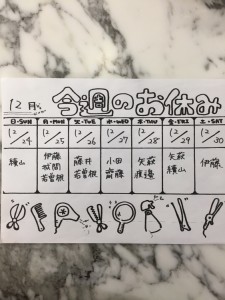 12月 今週のお休み
日・SUN 月・MON 火・TUE 水・WED 木・THU 金・FRI 土・SAT
12/24 12/25 12/26 12/27 12/28 12/29 12/30
横山 伊藤 藤井 小田 矢萩 矢萩 伊藤
城間 若曽根 齋藤 渡邊 横山
若曽根